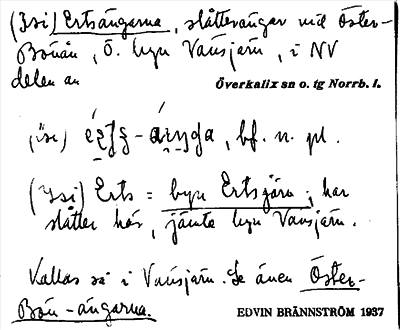 (Isi) Ertsängarna, slåtterängar vid Öster-
Bönån, Ö. byn Vansjärn, i NV
delen av Överkalix sn o. tg Norrb. l.
bf. n. pl.
(Isi) Erts = byn Ertsjärn; har
slåtter här, jämte byn Vansjärn.
Kallas så i Vansjärn. Se även Öster-
Bön-ängarna.
EDVIN BRÄNNSTRÖM 1937